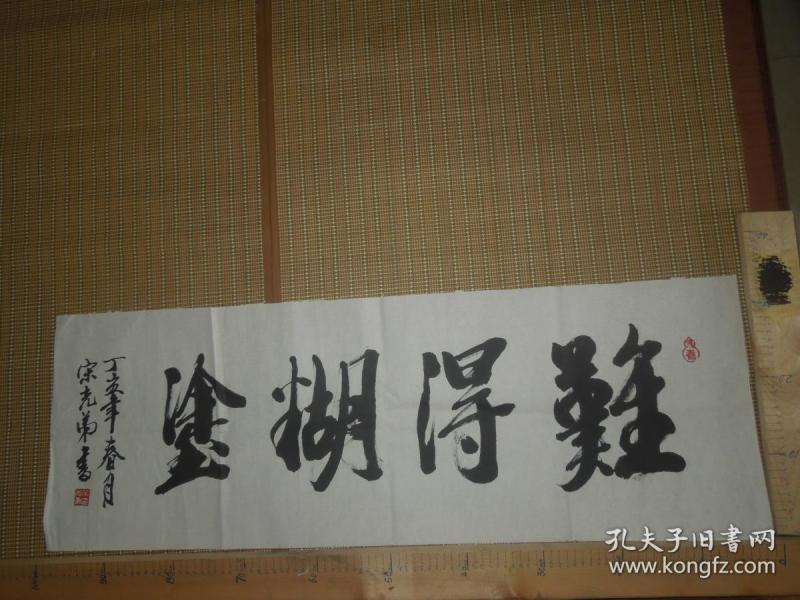 難得糊塗
丁亥年春月
宋克弟書
孔夫子旧書网
www.kongfz.com